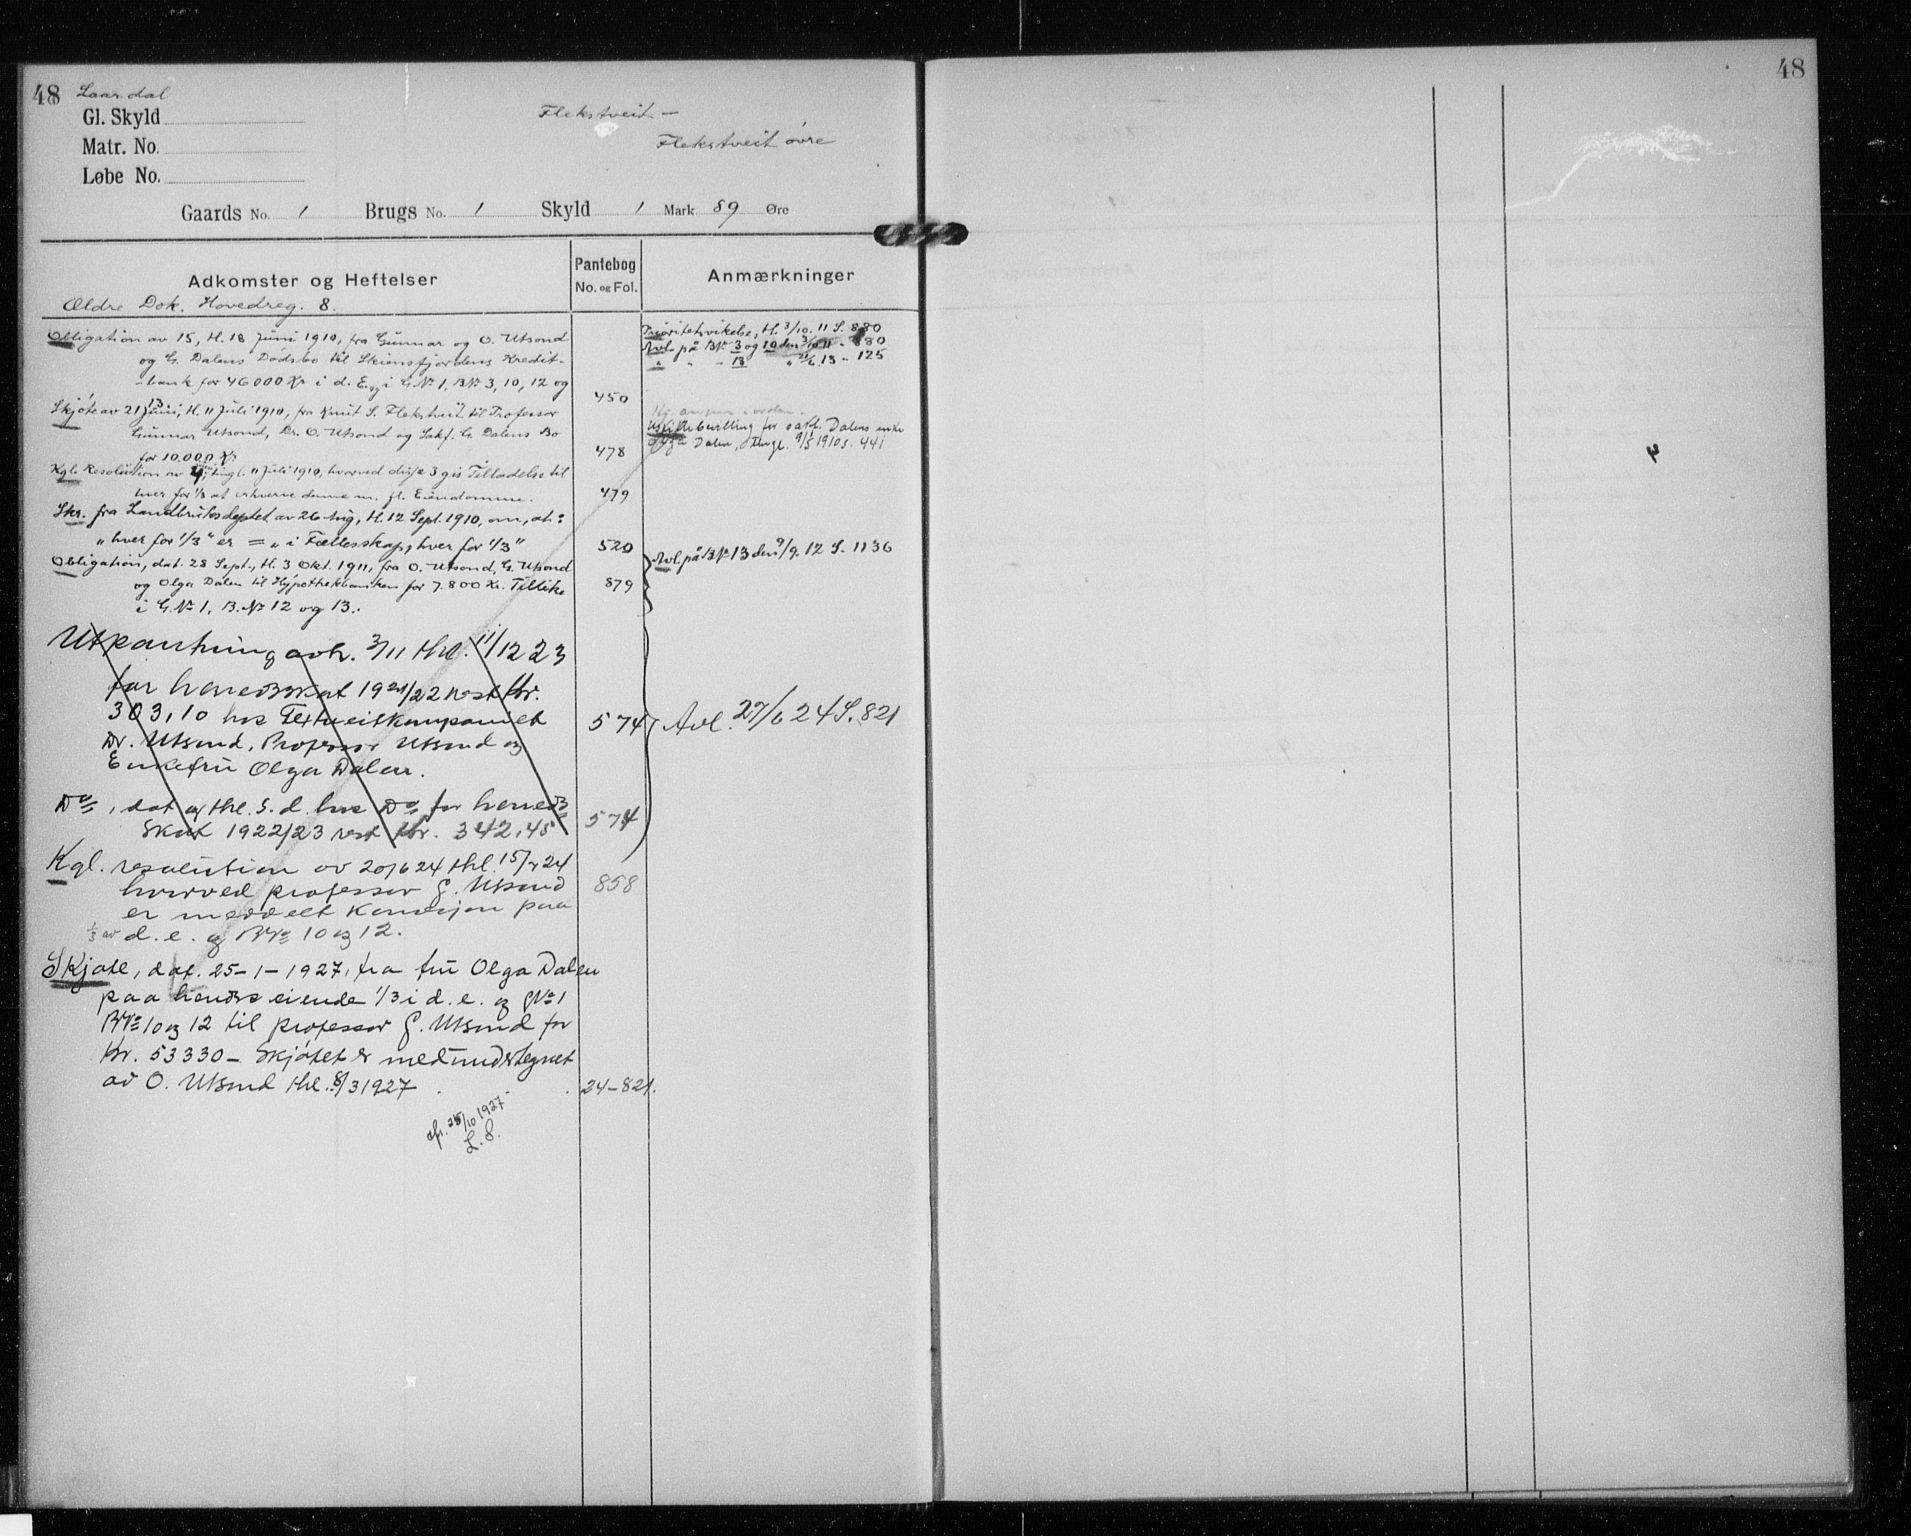 48 Laardal
Gl. Skyld
Matr. No.
Løbe No.
Flekstveit —
Flekstveit övre
Gaards No. 1 Brugs No. 1 Skyld 1 Mark 89 Øre
Adkomster og Heftelser
Pantebog
No. og Fol.
Anmærkninger
Ældre Dok. Hovedreg. 8.
Obligation av 15, tl. 18 Juni 1910, fra Gunnar og O. Utsond
og G. Dalens Dödsbo til Skiensfjordens Kredit-
-bank for 46000 Kr i d. E. og i G.No 1, BNo 3, 10, 12 og
13. 450
Skjöte av 21 Juni, tl. 11 Juli 1910, fra Knut S. Flekstveit til Professor
Gunnar Utsond, Dr. O. Utsond og Sakf. G. Dalens Bo
for 10.000 Kr 478
Kgl. Resolution av tingl. 11 Juli 1910, hvorved disse 3 gis Tilladelse til
hver for 1/3 at erhverve denne m. fl. Eiendomme. 479
Skr. fra Landbruksdeptet av 26 Aug, tl. 12 Sept. 1910, om, at:
"hver for 1/3" er = "i Fællesskap, hver for 1/3" 520
Obligation, dat. 28 Sept., tl. 3 Okt. 1911, fra O. Utsond, G. Utsond
og Olga Dalen til Hypothekbanken for 7.800 Kr. Tillike 879
i G.No 1, B.No 12 og 13.
Prioritetsvikelse, tl. 3/10. 11 S. 880
Avl. på BNo 3 og 10 den 3/10 11 - 880
" " - 13 " 21/6. 13 - 125
Uskiftebevilling for sakf. Dalens enke
Olga Dalen, thingl. 9/5 1910 s. 441
Avl. på BNo 13 den 9/9. 12 S. 1136
Utpantning avh. 3/11 thl. 11/12 23
for herredsskat 1921/22 rest kr.
303,10 hos Flekstveitkompaniet 574 Avl. 27/6 24 S. 821
Dr. Utsond, Professor Utsond og
Enkefru Olga Dalen.
Do, dat og thl. s. d. hos Do for herreds
skat 1922/23 rest kr. 342,45 574
Kgl. resolution av 20/6 24 thl. 15/7 24
hvorved professor G. Utsond 858
er meddelt konsesjon paa
1/3 av d. e. og BNo 10 og 12.
Skjøte, dat. 25-1-1927, fra fru Olga Dalen
paa hendes eiende 1/3 i d. e. og GNo 1
BNo 10 og 12 til professor G. Utsond for
Kr. 53330 - Skjøtet er medundertegnet
av O. Utsond thl. 8/3 1927 24-821.
afr. 25/10 1927.
L. S.
48